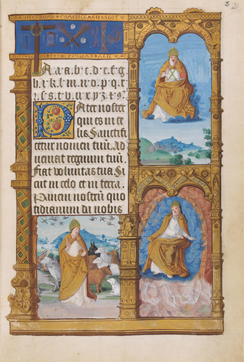 A a.b.c.d.e.f.g
h.i.k.l.m.n.o.p.q.
Pater noster
qui es in ce
lis Sanctifi
cetur nomen tuũ. Ad
ueniat regnum tuũ.
Fiat voluntas tua Si
cut in celo et in terra.
Panem nostrũ quo
tidianum da nobis